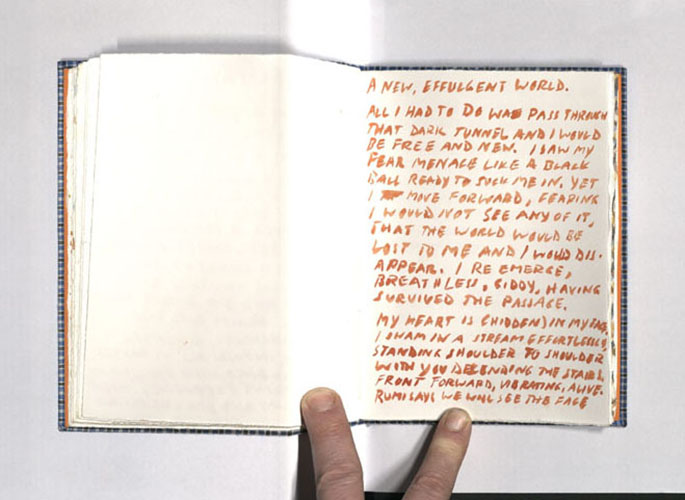 A NEW, EFFULGENT WORLD.
ALL I HAD TO DO WAS PASS THROUGH
THAT DARK TUNNEL AND I WOULD
BE FREE AND NEW. I SAW MY
FEAR MENACE LIKE A BLACK
BALL READY TO SUCK ME IN. YET
I MOVE FORWARD, FEARING
I WOULD NOT SEE ANY OF IT,
THAT THE WORLD WOULD BE
LOST TO ME AND I WOULD DIS-
APPEAR. I RE EMERGE,
BREATHLESS, GIDDY, HAVING
SURVIVED THE PASSAGE.
MY HEART IS (HIDDEN) IN MY FACE.
I SWAM IN A STREAM EFFORTLESSLY,
STANDING SHOULDER TO SHOULDER
WITH YOU DESCENDING THE STAIRS,
FRONT FORWARD, VIBRATING, ALIVE.
RUMI SAYS WE WILL SEE THE FACE